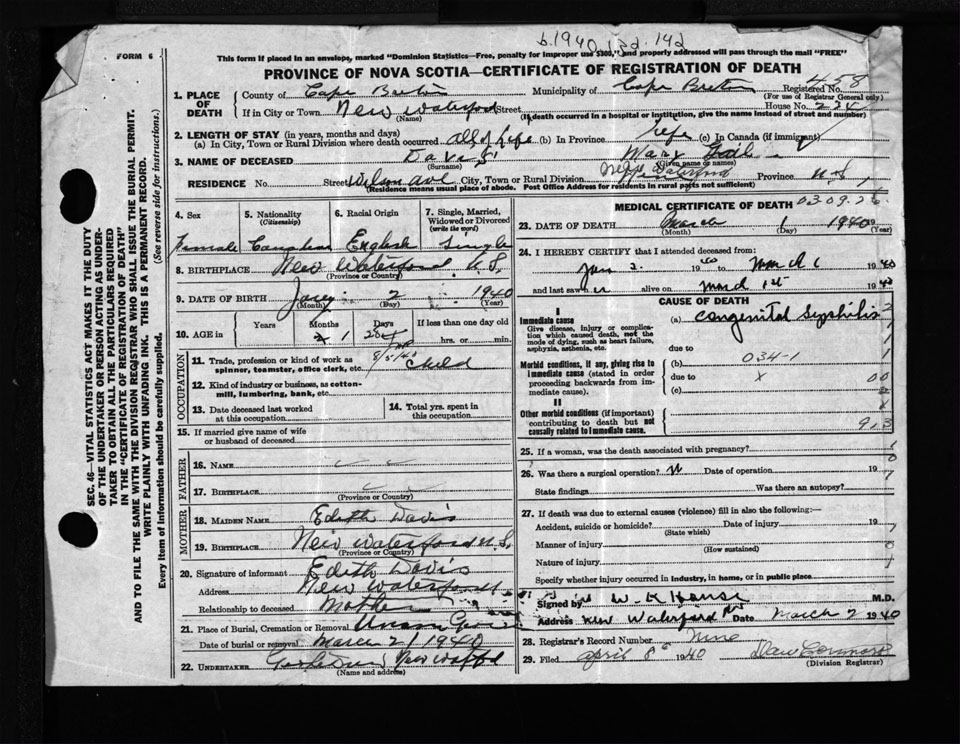 b.1940 3d. 14d
FORM 6
This form if placed in an envelope, marked "Dominion Statistics—Free, penalty for improper use $300," and properly addressed will pass through the mail "FREE"
PROVINCE OF NOVA SCOTIA—CERTIFICATE OF REGISTRATION OF DEATH
1. PLACE OF DEATH
County of Cape Breton Municipality of Cape Breton Registered No. 458
(For use of Registrar General only)
If in City or Town New Waterford Street House No. 224
(Name) (If death occurred in a hospital or institution, give the name instead of street and number)
2. LENGTH OF STAY (in years, months and days)
(a) In City, Town or Rural Division where death occurred all of life (b) In Province life (c) In Canada (if immigrant)
3. NAME OF DECEASED Davis Mary Gail
(Surname) (Given name or names)
RESIDENCE No. Street Wilson Ave City, Town or Rural Division New Waterford Province N.S.
(Residence means usual place of abode. Post Office Address for residents in rural parts not sufficient)
4. Sex 5. Nationality (Citizenship) 6. Racial Origin 7. Single, Married, Widowed or Divorced (write the word)
Female Canadian English Single
8. BIRTHPLACE New Waterford N.S.
(Province or Country)
9. DATE OF BIRTH Jany 2 1940
(Month) (Day) (Year)
10. AGE in Years Months Days If less than one day old
hrs. or min.
OCCUPATION
11. Trade, profession or kind of work as spinner, teamster, office clerk, etc. Child
12. Kind of industry or business, as cotton-mill, lumbering, bank, etc.
13. Date deceased last worked at this occupation
14. Total yrs. spent in this occupation
15. If married give name of wife or husband of deceased
FATHER
16. NAME
17. BIRTHPLACE
(Province or Country)
MOTHER
18. MAIDEN NAME Edith Davis
19. BIRTHPLACE New Waterford N.S.
(Province or Country)
20. Signature of informant Edith Davis
Address New Waterford
Relationship to deceased Mother
21. Place of Burial, Cremation or Removal
Date of burial or removal March 2 1940
22. UNDERTAKER
(Name and address)
MEDICAL CERTIFICATE OF DEATH
23. DATE OF DEATH March 1 1940
(Month) (Day) (Year)
24. I HEREBY CERTIFY that I attended deceased from:
Jan 2 1940 to March 1 1940
and last saw her alive on March 1st 1940
CAUSE OF DEATH
I
Immediate cause
Give disease, injury or complication which caused death, not the mode of dying, such as heart failure, asphyxia, asthenia, etc.
(a) Congenital Syphilis
due to
034-1
Morbid conditions, if any, giving rise to immediate cause (stated in order proceeding backwards from immediate cause).
(b)
due to x
(c)
II
Other morbid conditions (if important) contributing to death but not causally related to immediate cause.
25. If a woman, was the death associated with pregnancy?
26. Was there a surgical operation? N Date of operation 19
State findings Was there an autopsy?
27. If death was due to external causes (violence) fill in also the following:—
Accident, suicide or homicide? Date of injury 19
(State which)
Manner of injury
(How sustained)
Nature of injury
Specify whether injury occurred in industry, in home, or in public place
Signed by M.D.
Address New Waterford NS Date March 2 1940
28. Registrar's Record Number Nine
29. Filed April 8 1940
(Division Registrar)
SEC. 46—VITAL STATISTICS ACT MAKES IT THE DUTY OF THE UNDERTAKER OR PERSON ACTING AS UNDERTAKER TO OBTAIN ALL THE PARTICULARS REQUIRED IN THE "CERTIFICATE OF REGISTRATION OF DEATH" AND TO FILE THE SAME WITH THE DIVISION REGISTRAR WHO SHALL ISSUE THE BURIAL PERMIT.
WRITE PLAINLY WITH UNFADING INK. THIS IS A PERMANENT RECORD.
Every item of information should be carefully supplied. (See reverse side for instructions.)